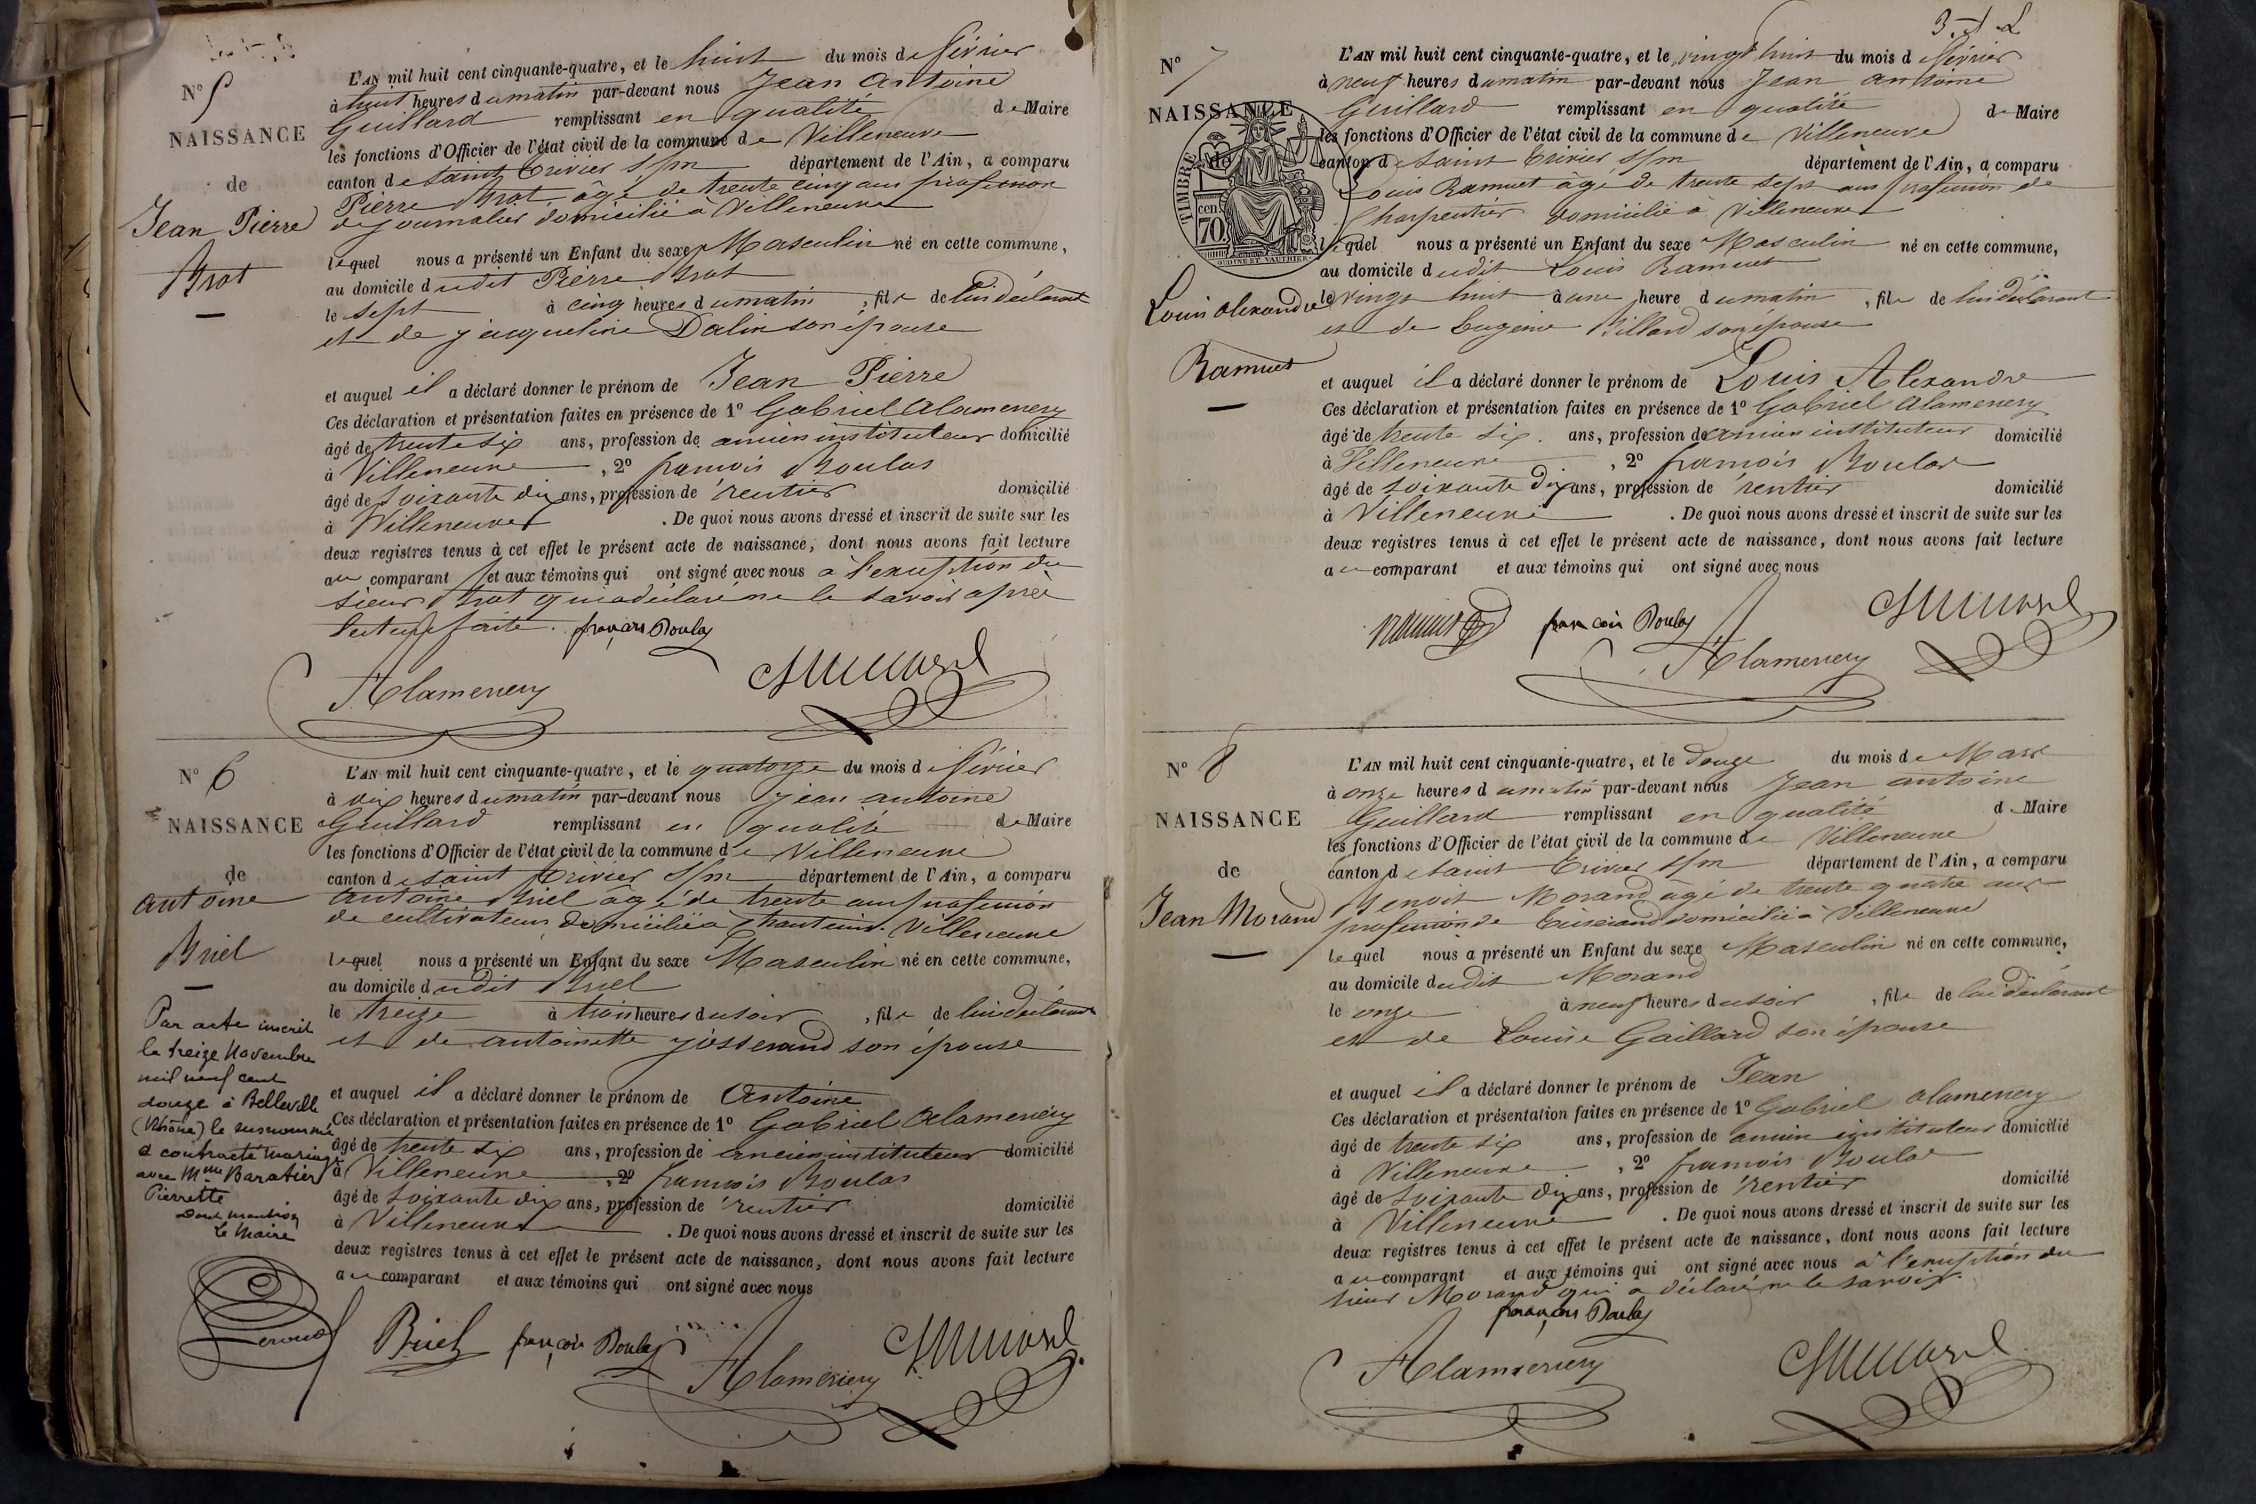 N° 5
NAISSANCE
de
Jean Pierre
Brot
L'AN mil huit cent cinquante-quatre, et le huit du mois de février
à huit heures du matin par-devant nous Jean Antoine
Guillard remplissant en qualité de Maire
les fonctions d'Officier de l'état civil de la commune de Villeneuve
canton de Saint Trivier s/m département de l'Ain, a comparu
Pierre Brot, âgé de trente cinq ans profession
de journalier domicilié à Villeneuve
lequel nous a présenté un Enfant du sexe Masculin né en cette commune,
au domicile dudit Pierre Brot
le sept à cinq heures du matin, fils de lui déclarant
et de jacqueline Dalin son épouse
et auquel il a déclaré donner le prénom de Jean Pierre
Ces déclaration et présentation faites en présence de 1° Gabriel Alamercery
âgé de trente six ans, profession de ancien instituteur domicilié
à Villeneuve, 2° francois Boulas
âgé de soixante dix ans, profession de rentier domicilié
à Villeneuve. De quoi nous avons dressé et inscrit de suite sur les
deux registres tenus à cet effet le présent acte de naissance, dont nous avons fait lecture
au comparant et aux témoins qui ont signé avec nous à l'exception du
sieur Brot qui a déclaré ne le savoir après
lecture faite. françois Boulas
Alamercery Guillard
N° 6
NAISSANCE
de
antoine
Briel
Par acte inscrit
le treize Novembre
mil neuf cent
douze à Belleville
(Rhône) le susnommé
a contracté mariage
avec Mme Baratier
Pierrette
Dont mention
Le Maire
L'AN mil huit cent cinquante-quatre, et le quatorze du mois de février
à dix heures du matin par-devant nous jean antoine
Guillard remplissant en qualité de Maire
les fonctions d'Officier de l'état civil de la commune de Villeneuve
canton de saint Trivier s/m département de l'Ain, a comparu
antoine Briel âgé de trente ans profession
de cultivateur domicilié à Villeneuve
lequel nous a présenté un Enfant du sexe Masculin né en cette commune,
au domicile dudit Briel
le treize à trois heures du soir, fils de lui déclarant
et de antoinette josserand son épouse
et auquel il a déclaré donner le prénom de Antoine
Ces déclaration et présentation faites en présence de 1° Gabriel Alamercery
âgé de trente six ans, profession de ancien instituteur domicilié
à Villeneuve, 2° francois Boulas
âgé de soixante dix ans, profession de rentier domicilié
à Villeneuve. De quoi nous avons dressé et inscrit de suite sur les
deux registres tenus à cet effet le présent acte de naissance, dont nous avons fait lecture
au comparant et aux témoins qui ont signé avec nous
Briel françois Boulas Alamercery Guillard
N° 7
NAISSANCE
de
TIMBRE
cen.
70
Louis alexandre
Ramuet
L'AN mil huit cent cinquante-quatre, et le vingt huit du mois de février
à neuf heures du matin par-devant nous Jean antoine
Guillard remplissant en qualité de Maire
les fonctions d'Officier de l'état civil de la commune de Villeneuve
canton de saint Trivier s/m département de l'Ain, a comparu
Louis Ramuet âgé de trente sept ans profession de
Charpentier domicilié à Villeneuve
lequel nous a présenté un Enfant du sexe Masculin né en cette commune,
au domicile dudit Louis Ramuet
le vingt huit à une heure du matin, fils de lui déclarant
et de Eugénie Billard son épouse
et auquel il a déclaré donner le prénom de Louis Alexandre
Ces déclaration et présentation faites en présence de 1° Gabriel Alamercery
âgé de trente six ans, profession de ancien instituteur domicilié
à Villeneuve, 2° francois Boulas
âgé de soixante Dix ans, profession de rentier domicilié
à Villeneuve. De quoi nous avons dressé et inscrit de suite sur les
deux registres tenus à cet effet le présent acte de naissance, dont nous avons fait lecture
au comparant et aux témoins qui ont signé avec nous
ramuet francois Boulas Guillard
Alamercery
N° 8
NAISSANCE
de
Jean Morand
L'AN mil huit cent cinquante-quatre, et le douze du mois de Mars
à onze heures du matin par-devant nous Jean antoine
Guillard remplissant en qualité de Maire
les fonctions d'Officier de l'état civil de la commune de Villeneuve
canton de saint Trivier s/m département de l'Ain, a comparu
Benoit Morand âgé de trente quatre ans
profession de tisserand domicilié à Villeneuve
lequel nous a présenté un Enfant du sexe Masculin né en cette commune,
au domicile dudit Morand
le onze à neuf heures du soir, fils de lui déclarant
et de Louise Gaillard son épouse
et auquel il a déclaré donner le prénom de Jean
Ces déclaration et présentation faites en présence de 1° Gabriel alamercery
âgé de trente six ans, profession de ancien instituteur domicilié
à Villeneuve, 2° francois Boulas
âgé de soixante dix ans, profession de rentier domicilié
à Villeneuve. De quoi nous avons dressé et inscrit de suite sur les
deux registres tenus à cet effet le présent acte de naissance, dont nous avons fait lecture
au comparant et aux témoins qui ont signé avec nous à l'exception du
sieur Morand qui a déclaré ne le savoir.
françois Boulas
Alamercery Guillard